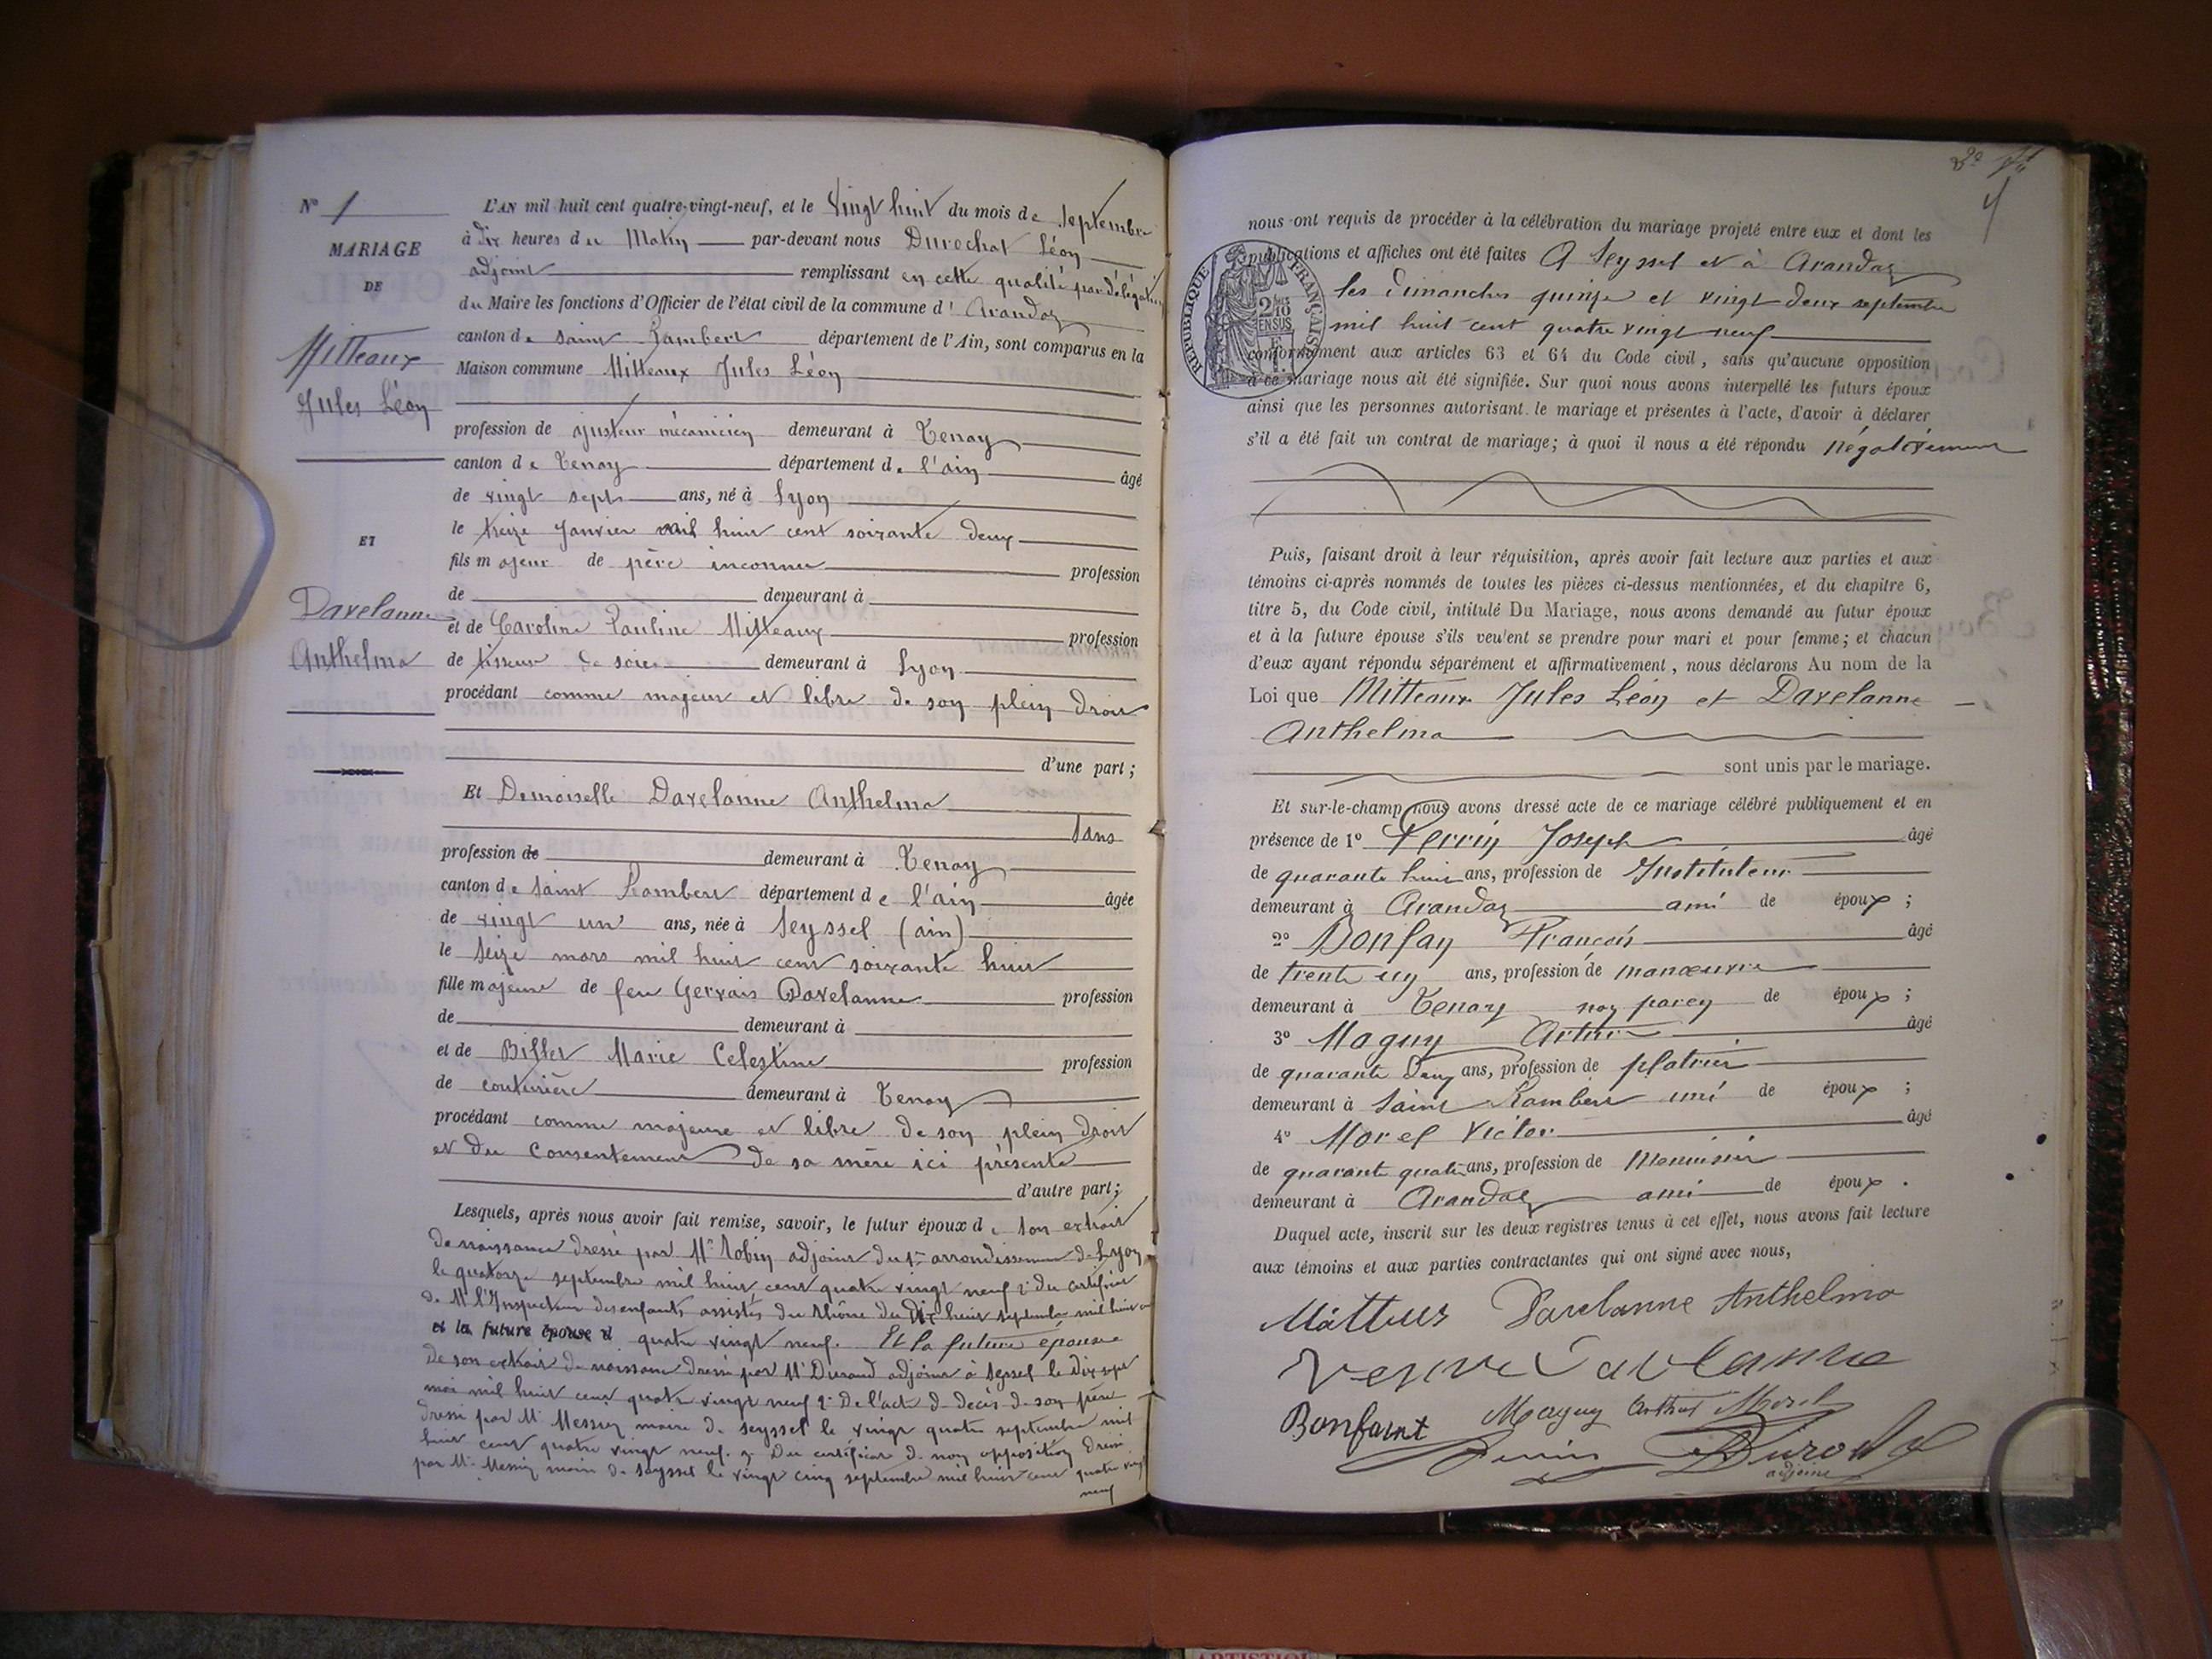 N° 1
MARIAGE
DE
Mitteaux
Jules Léon
ET
Davelanne
Anthelma
L'AN mil huit cent quatre-vingt-neuf, et le Vingt huit du mois de septembre
à dix heures du Matin par-devant nous Durochat Léon
adjoint remplissant en cette qualité par délégation
du Maire les fonctions d'Officier de l'état civil de la commune d' Arandas
canton de saint Rambert département de l'Ain, sont comparus en la
Maison commune Mitteaux Jules Léon
profession de ajusteur mécanicien demeurant à Tenay
canton de Tenay département de l'ain âgé
de vingt sept ans, né à Lyon
le treize Janvier mil huit cent soixante deux
fils majeur de père inconnu profession
de demeurant à
et de Caroline Pauline Mitteaux profession
de tisseur de soies demeurant à Lyon
procédant comme majeur et libre de son plein droit
d'une part;
Et Demoiselle Davelanne Anthelma
sans
profession de demeurant à Tenay
canton de saint Rambert département de l'ain âgée
de vingt un ans, née à Seyssel (ain)
le seize mars mil huit cent soixante huit
fille majeure de feu Gervais Davelanne profession
de demeurant à
et de Billet Marie Celestine profession
de couturière demeurant à Tenay
procédant comme majeure et libre de son plein droit
et du Consentement de sa mère ici présente
d'autre part;
Lesquels, après nous avoir fait remise, savoir, le futur époux de son extrait
de naissance dressé par Mr Robin adjoint du 1er arrondissement de Lyon
le quatorze septembre mil huit cent quatre vingt neuf 2° du certificat
de Mr l'Inspecteur des enfants assistés du Rhône du Dix huit septembre mil huit cent
et la future épouse d quatre vingt neuf. Et la future épouse
de son extrait de naissance dressé par Mr Durand adjoint à Seyssel le Dix sept
mai mil huit cent quatre vingt neuf 2° De l'acte de décès de son père
dressé par Mr Messin maire de Seyssel le vingt quatre septembre mil
huit cent quatre vingt neuf. 3° Du certificat de non opposition dressé
par Mr Messin maire de Seyssel le vingt cinq septembre mil huit cent quatre vingt
neuf
nous ont requis de procéder à la célébration du mariage projeté entre eux et dont les
publications et affiches ont été faites A Seyssel et à Arandas
les dimanches quinze et vingt deux septembre
mil huit cent quatre vingt neuf
RÉPUBLIQUE FRANÇAISE
2/10 EN SUS
conformément aux articles 63 et 64 du Code civil, sans qu'aucune opposition
à ce mariage nous ait été signifiée. Sur quoi nous avons interpellé les futurs époux
ainsi que les personnes autorisant le mariage et présentes à l'acte, d'avoir à déclarer
s'il a été fait un contrat de mariage; à quoi il nous a été répondu négativement
Puis, faisant droit à leur réquisition, après avoir fait lecture aux parties et aux
témoins ci-après nommés de toutes les pièces ci-dessus mentionnées, et du chapitre 6,
titre 5, du Code civil, intitulé Du Mariage, nous avons demandé au futur époux
et à la future épouse s'ils veulent se prendre pour mari et pour femme; et chacun
d'eux ayant répondu séparément et affirmativement, nous déclarons Au nom de la
Loi que Mitteaux Jules Léon et Davelanne
Anthelma
sont unis par le mariage.
Et sur-le-champ nous avons dressé acte de ce mariage célébré publiquement et en
présence de 1° Perrin Joseph âgé
de quarante huit ans, profession de Instituteur
demeurant à Arandas ami de époux;
2° Bonfan François âgé
de trente un ans, profession de manœuvre
demeurant à Tenay non parent de époux;
3° Maguy Arthur âgé
de quarante deux ans, profession de platrier
demeurant à Saint Rambert ami de époux;
4° Morel Victor âgé
de quarante quatre ans, profession de Menuisier
demeurant à Arandas ami de époux.
Duquel acte, inscrit sur les deux registres tenus à cet effet, nous avons fait lecture
aux témoins et aux parties contractantes qui ont signé avec nous,
Davelanne Anthelma
Veuve Davelanne
Bonfaint Maguy Arthur Morel
Perrin
adjoint